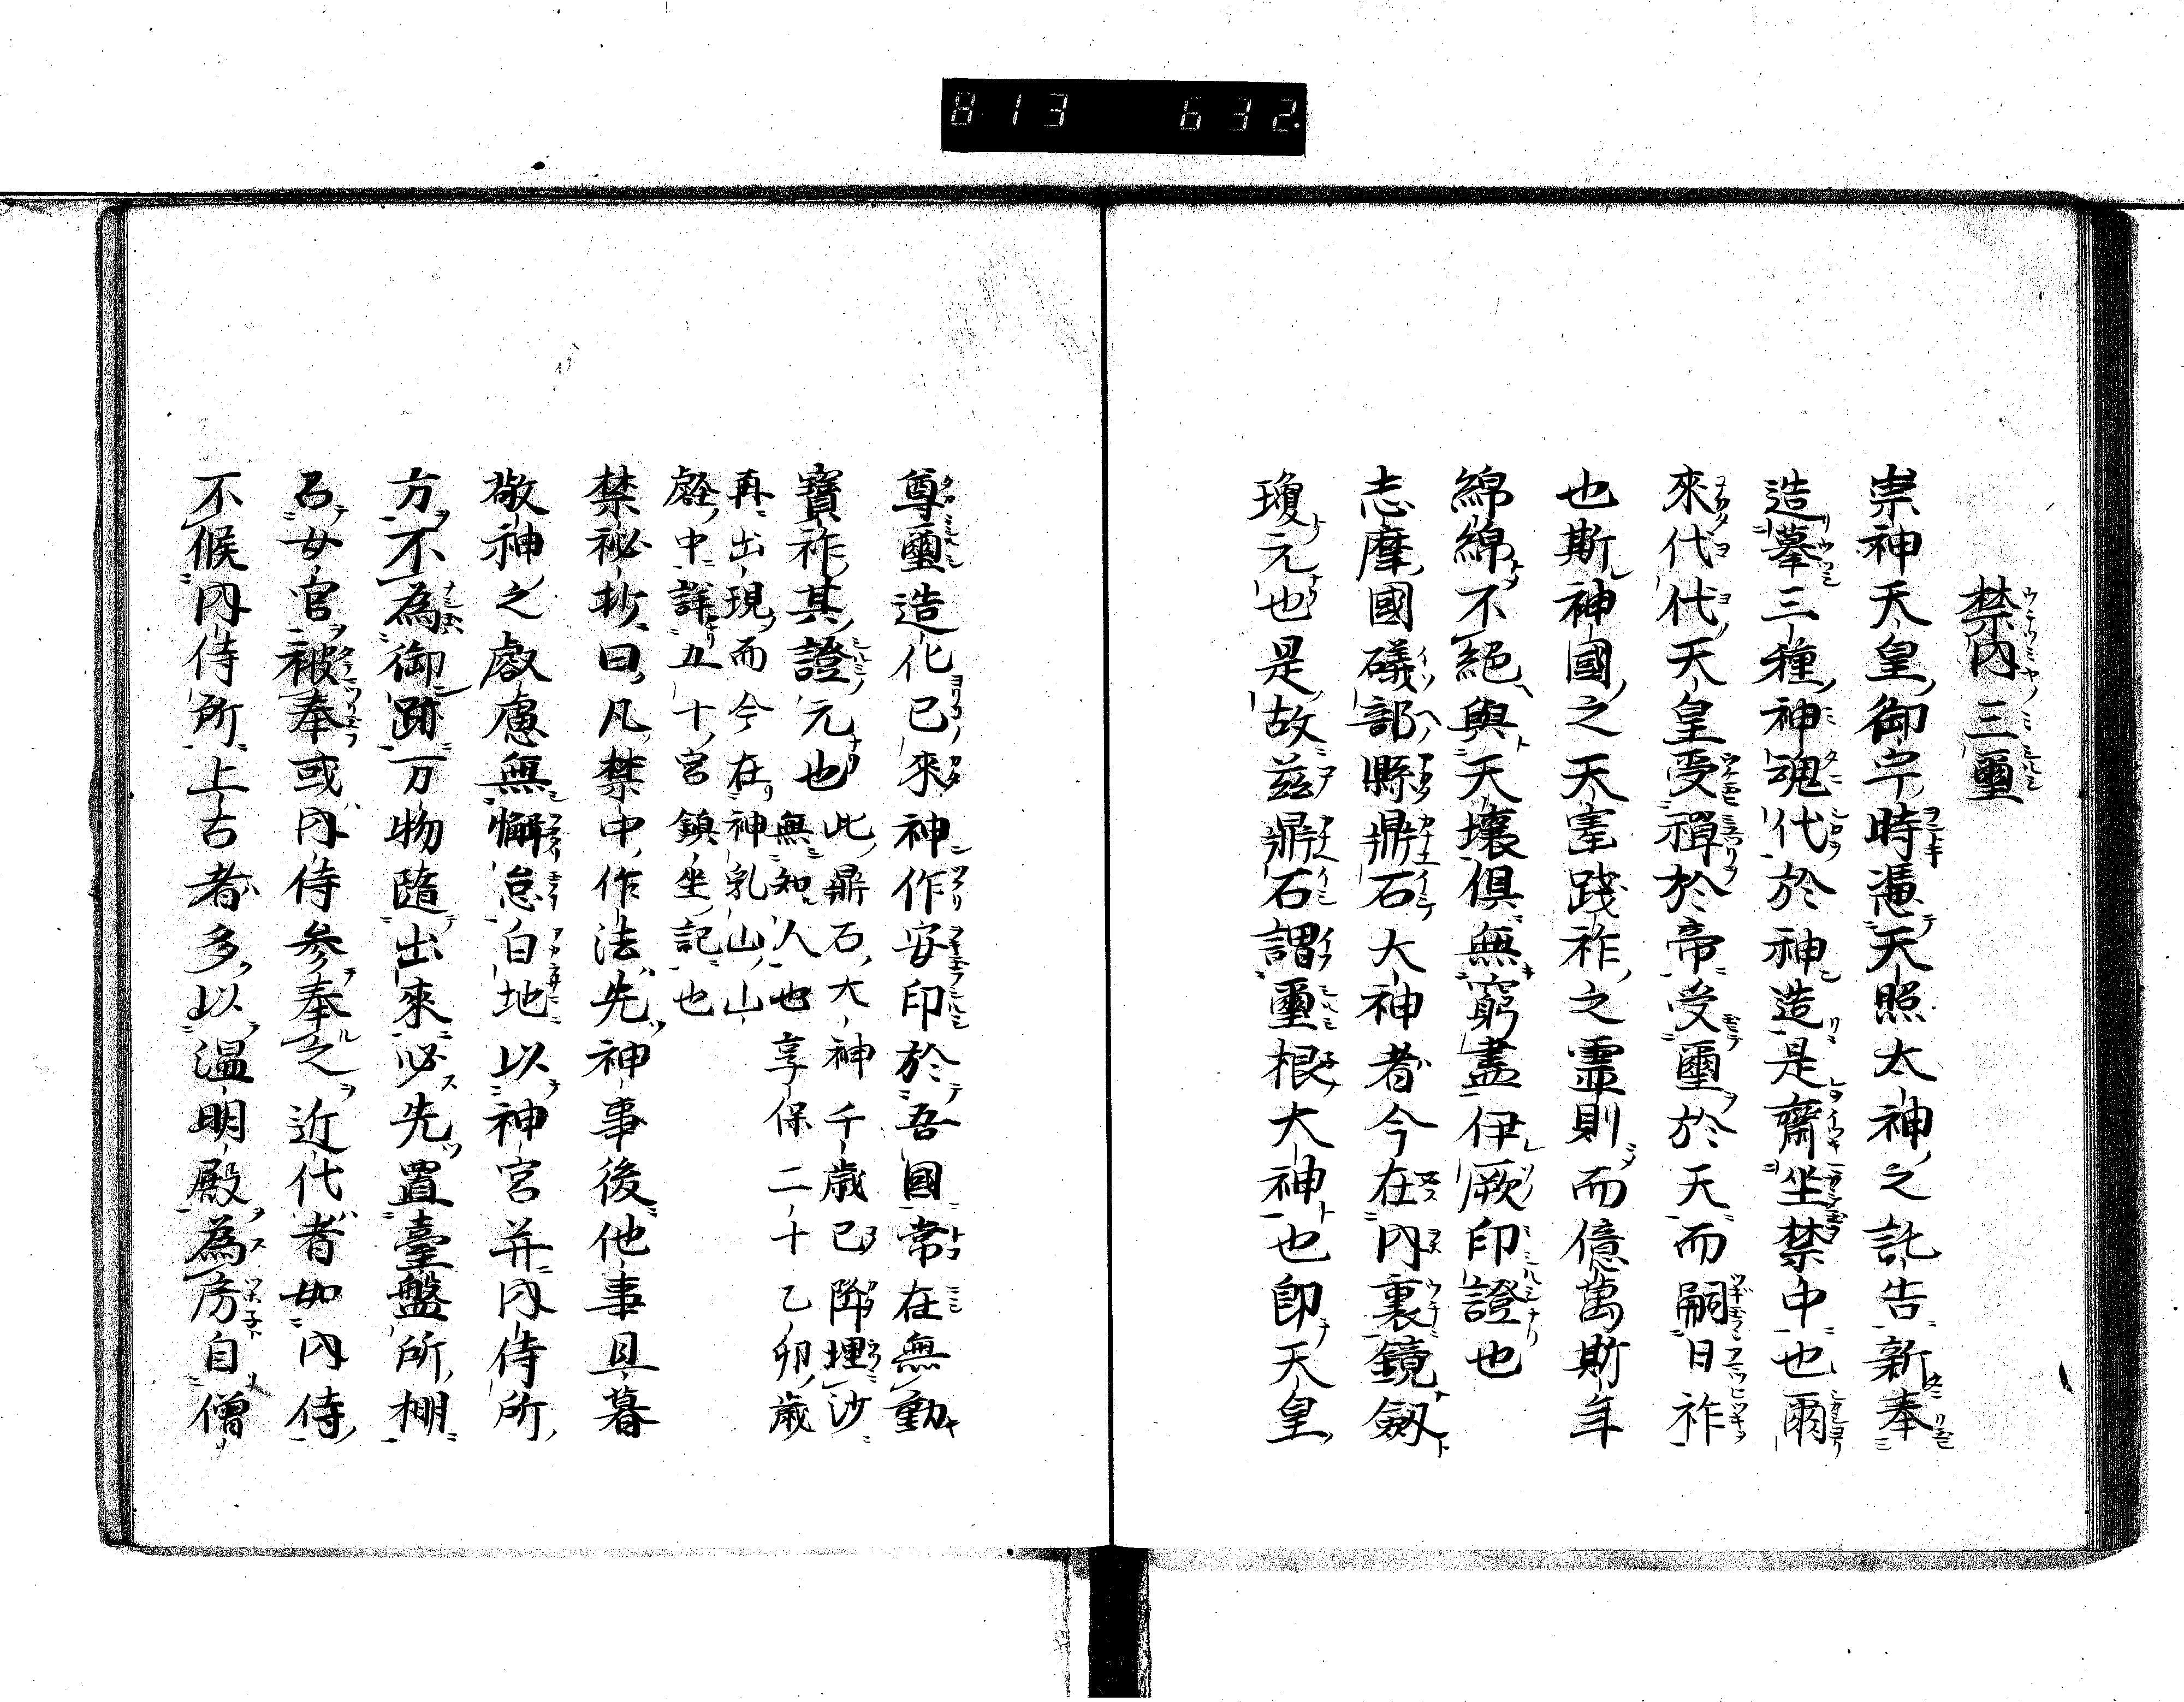 813 632
禁内三璽
崇神天皇御宇時憑天照太神之託告新奉
造摹三種神魂代於神造是齋坐禁中也爾
來代代天皇受禪於帝受璽於天而嗣日祚
也斯神國之天室踐祚之靈則而億萬斯年
綿綿不絕與天壤俱無窮盡伊厥印證也
志摩國礒部縣鼎石大神者今在內裏鏡劔
瓊元也是故茲鼎石謂璽根大神也即天皇
尊璽造化已來神作安印於吾國常在無動
寶祚其證元也此鼎石大神千歲已降埋沙
無知人也享保二十乙卯歲
再出現而今在神乳山山
廰中詳五十宮鎮坐記也
禁祕抄曰凡禁中作法先神事後他事旦暮
敬神之叡慮無懈怠白地以神宮并内侍所
方不為御跡万物隨出來必先置臺盤所棚
召女官被奉或内侍參奉之近代者如内侍
不候内侍所上古者多以溫明殿為房自僧